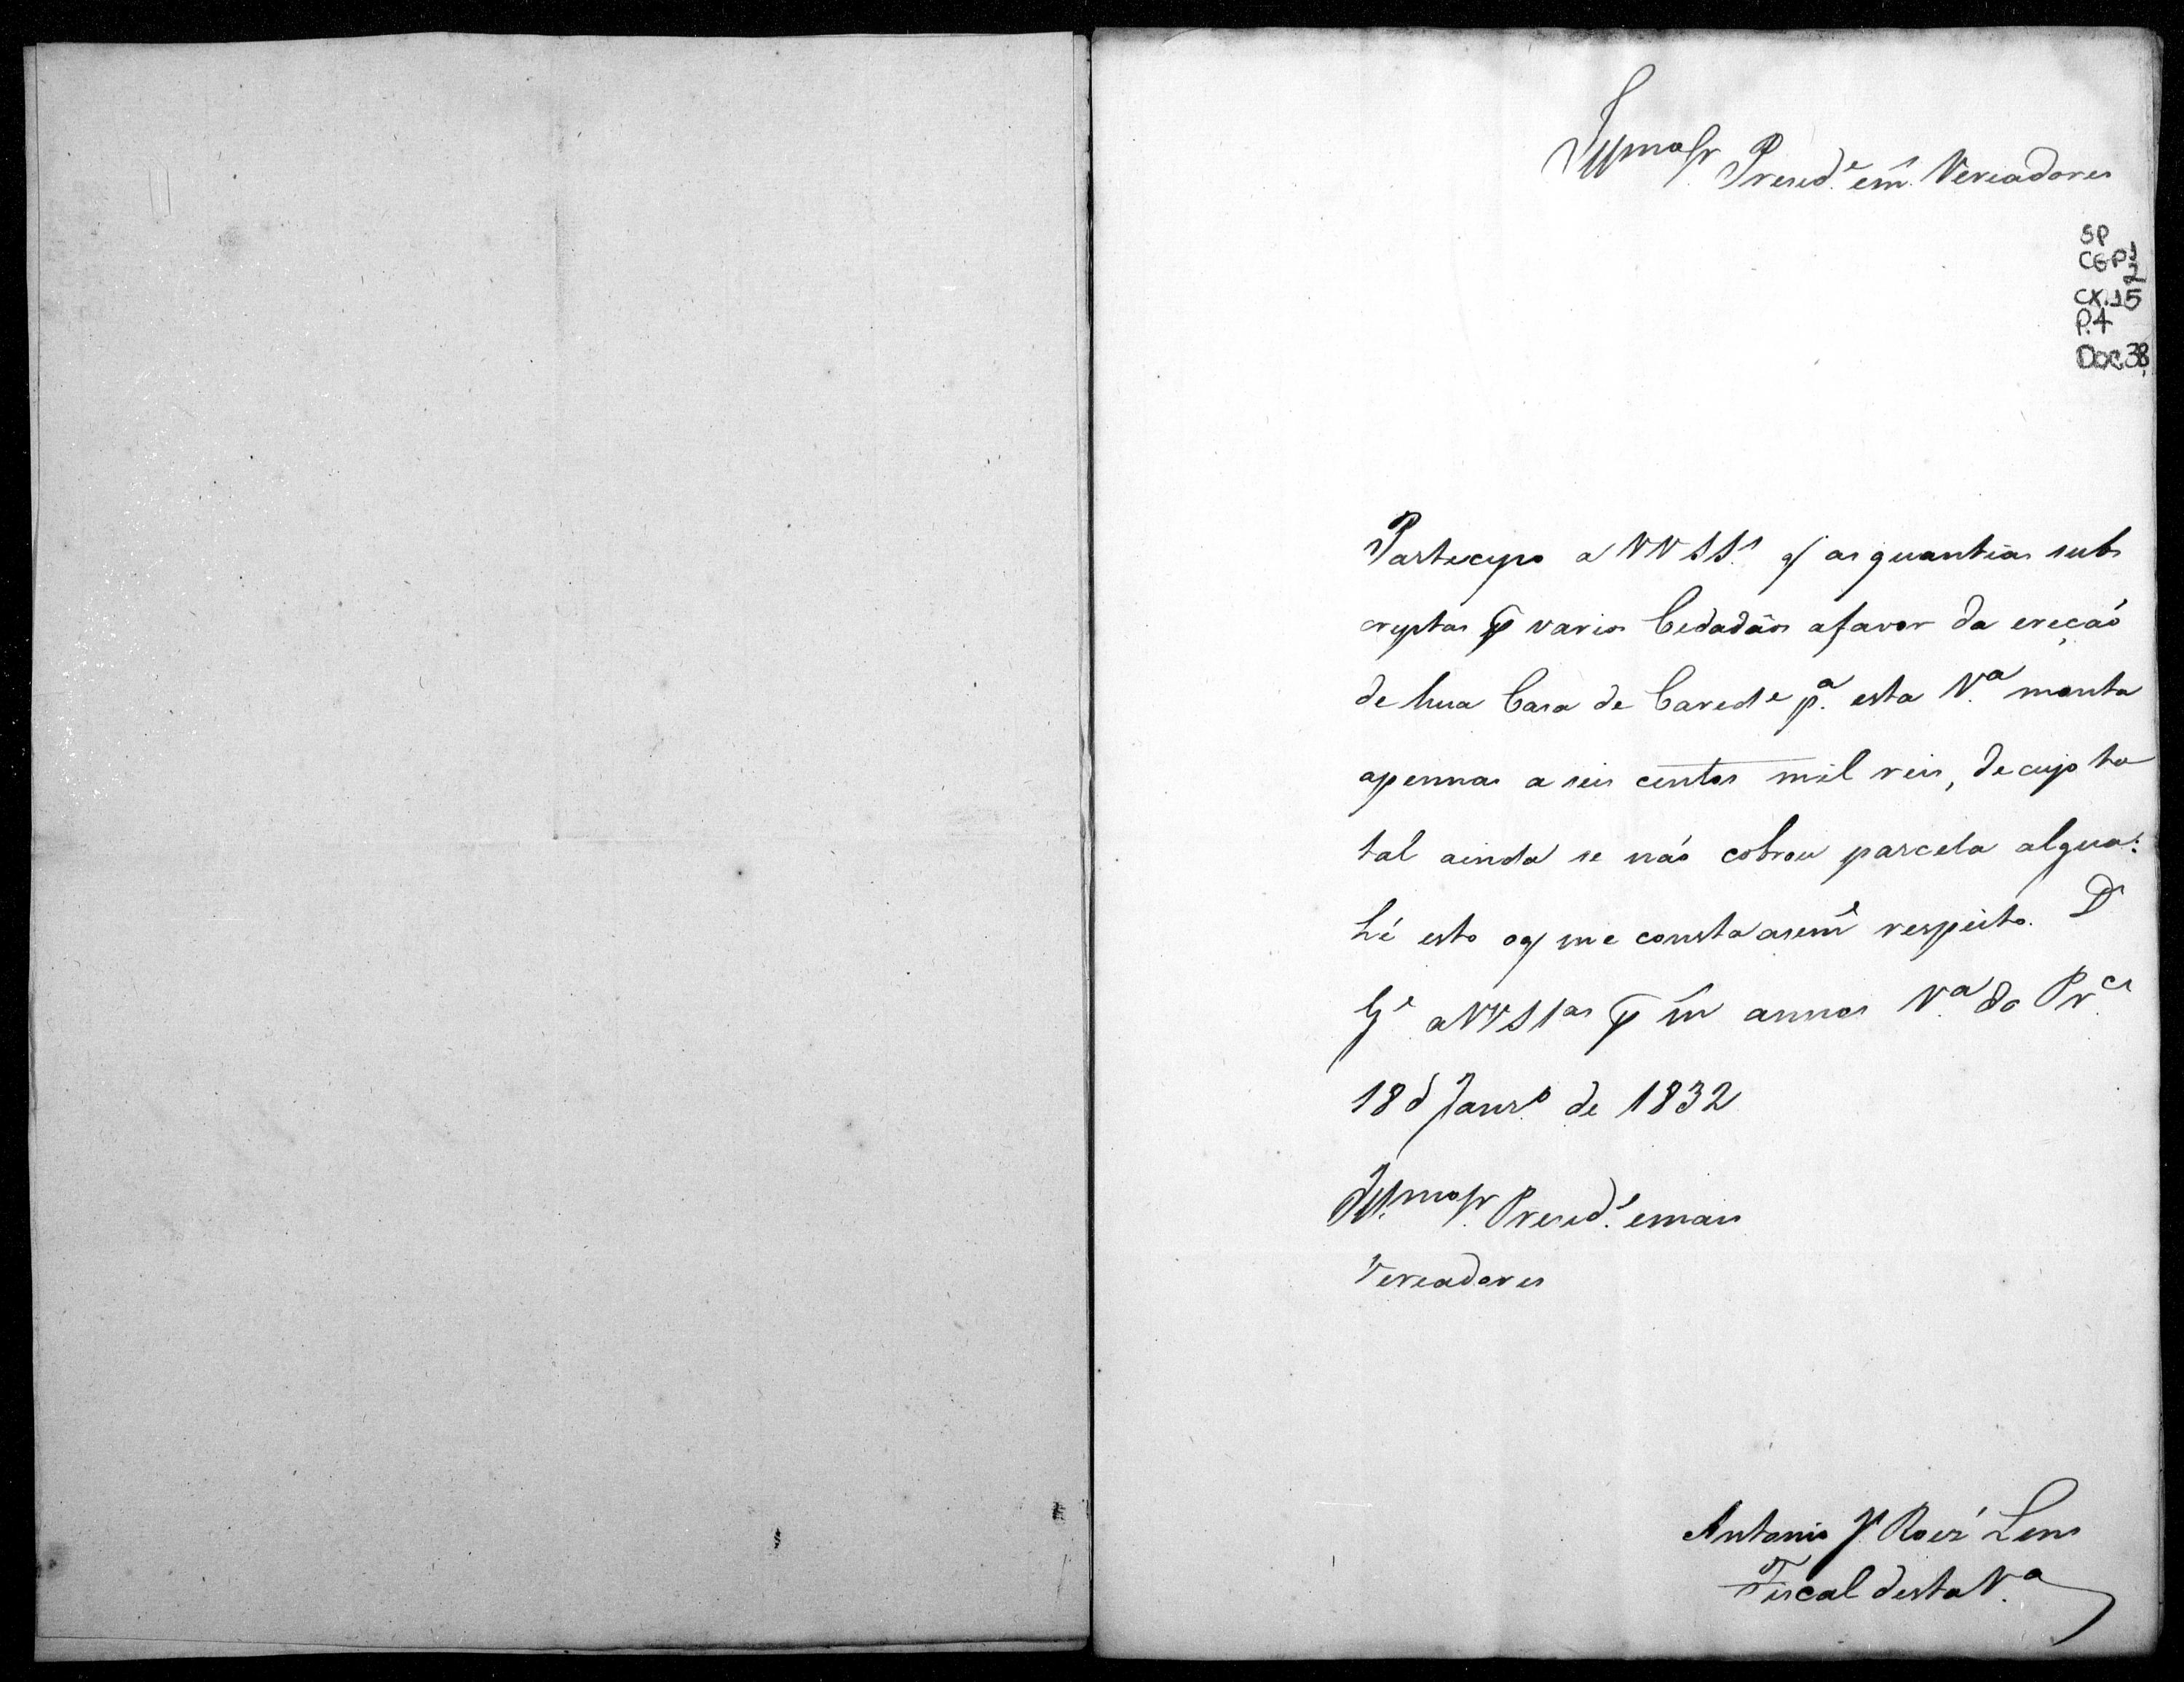 Illmos Snr Presid.e e m.s Vereadores
SP
CGP1
2
CX.15
P.4
DOC.38
Partecipo a VVSS.s q as quantias subs
criptas p varios Cedadãos afavor da ereçaó
de hua Casa de Carede p.a esta V.a monta
apennas a seis centos mil reis, decujo to
tal ainda se naó cobrou parcela algua:
hé esto oq me consta asem.e respeito. D.s
G.e aVVSS.as p m.s annos V.a do Pr.
18 d Janr.o de 1832
Ill.mos Snr Presid.e emais
Vereadores
Antonio Roiz
Fiscal desta V.a